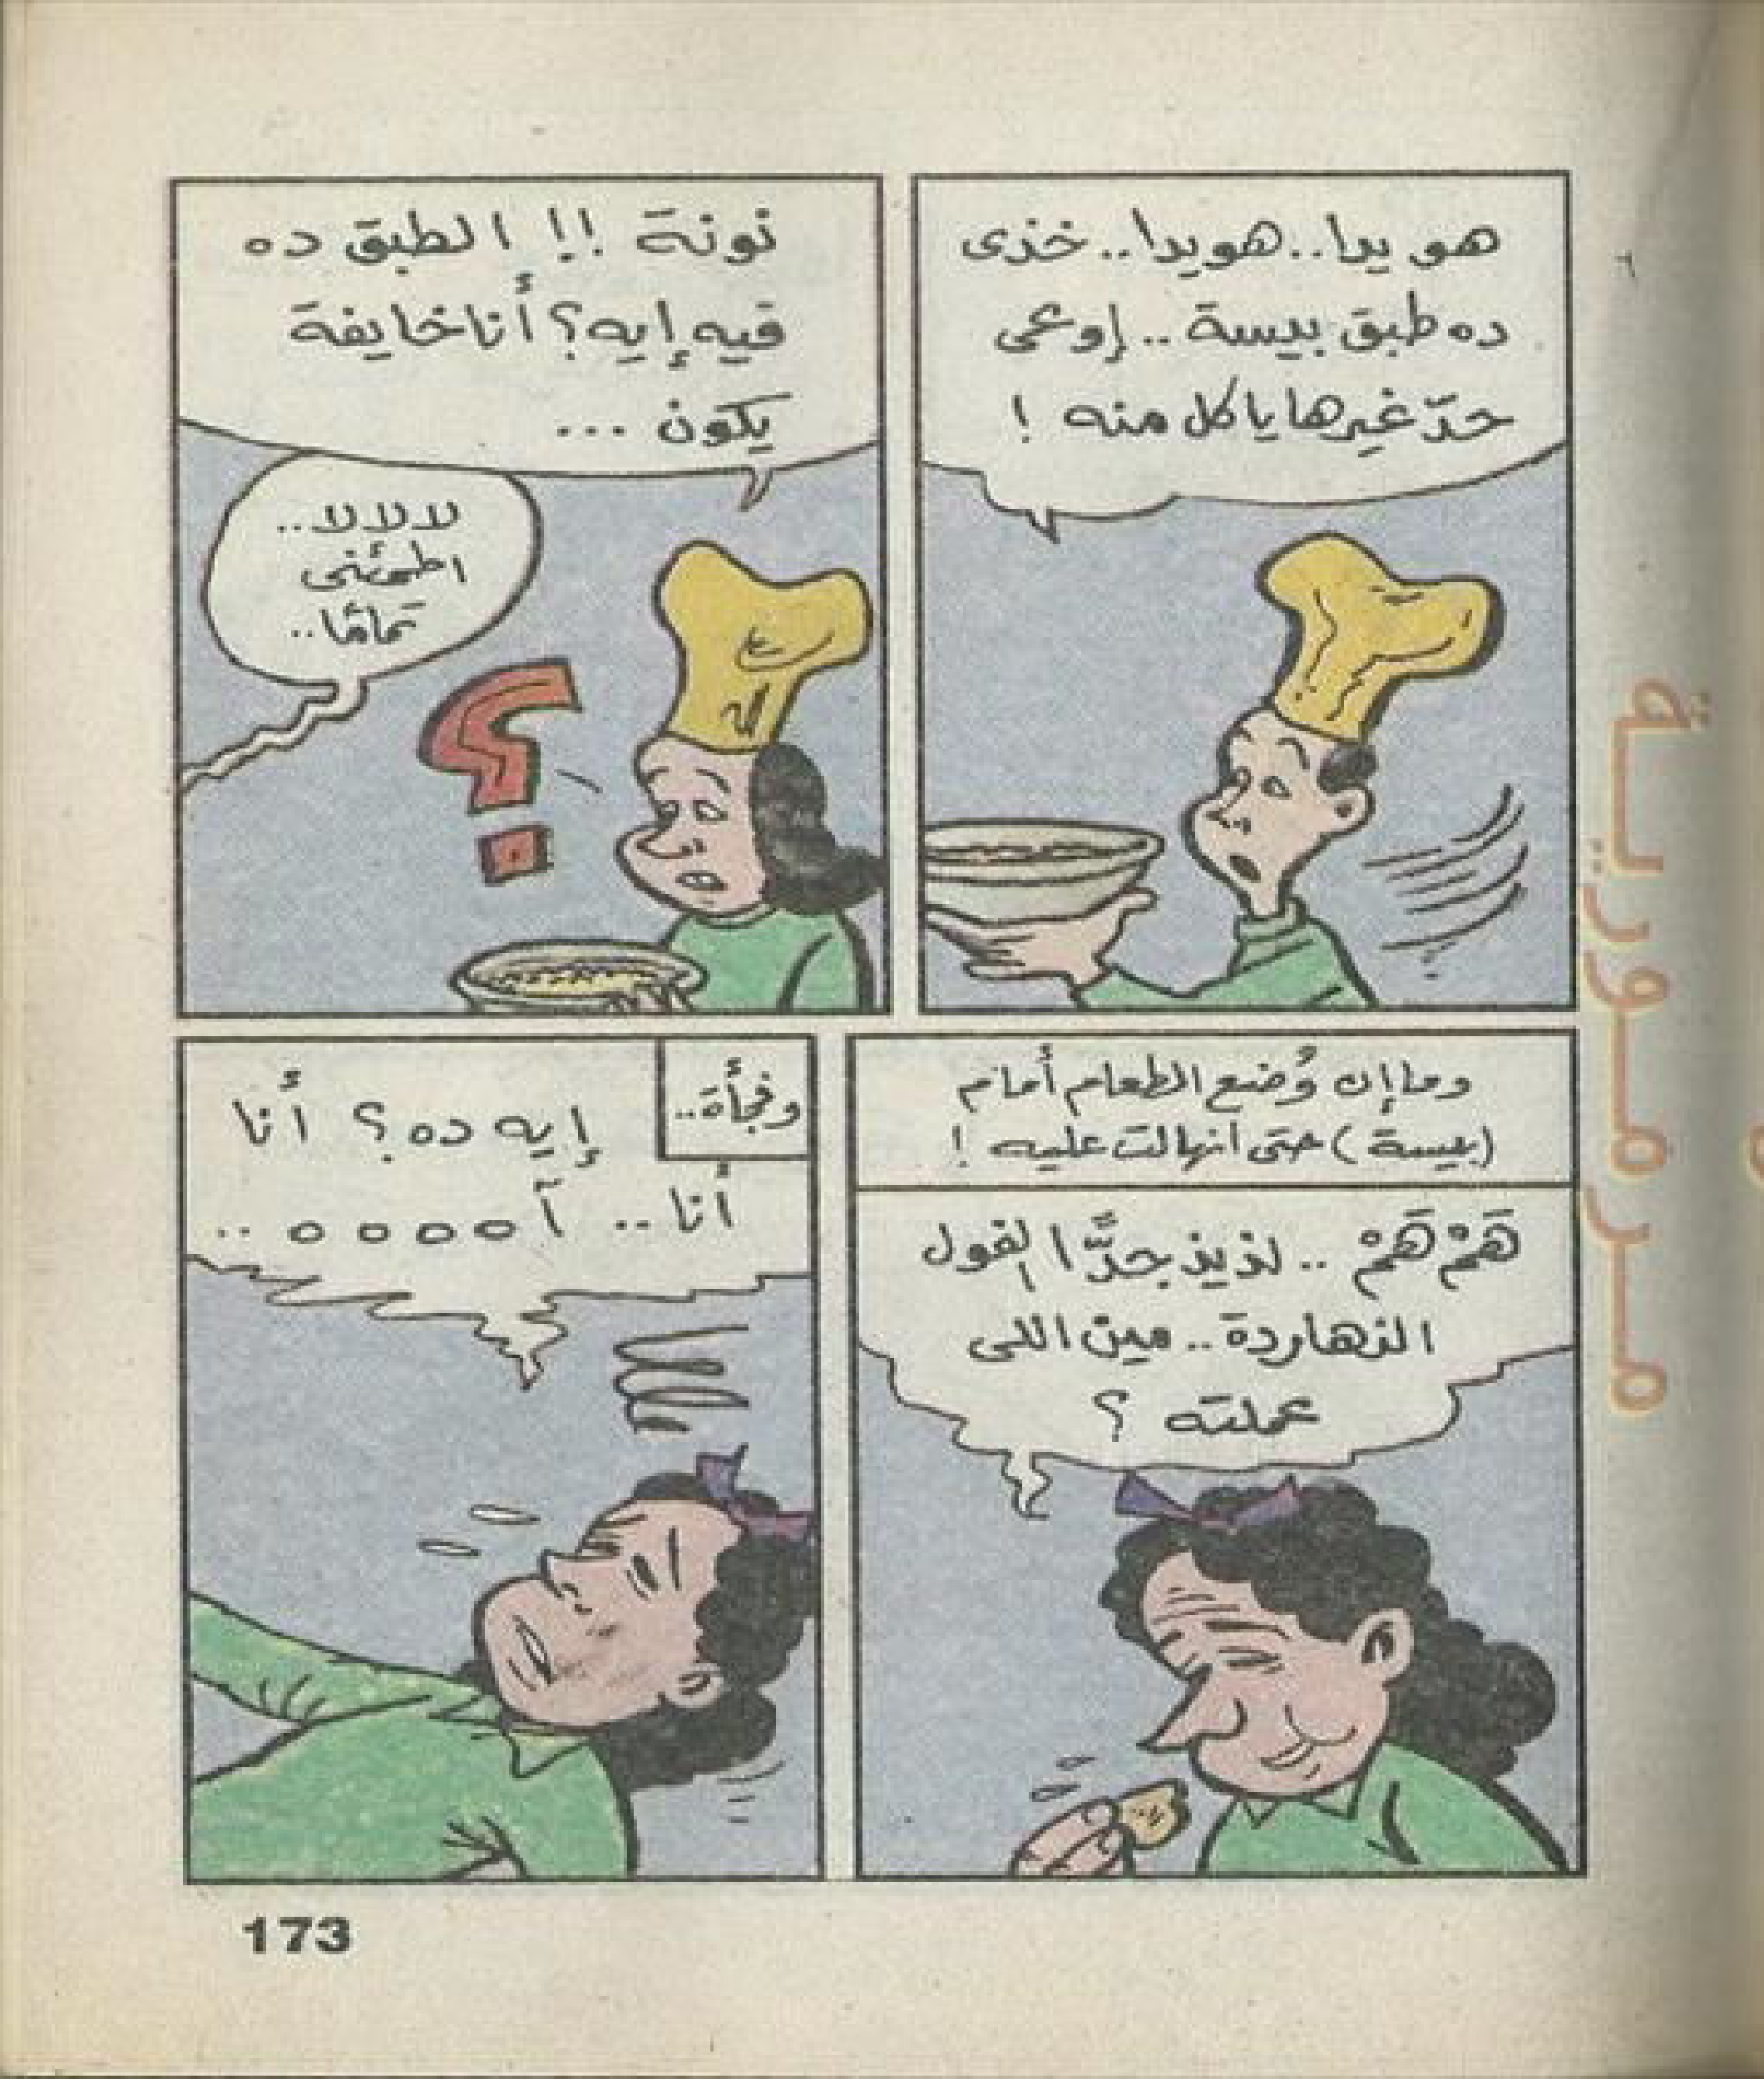 هويدا..هويدا..خذى
ده طبق بيسة.. إوعى
حدّ غيرها ياكل منه !
نونة !! الطبق ده
فيه إيه؟ أنا خايفة
يكون ...
لا لا لا..
اطمئنى
تمامًا..
وما إن وُضع الطعام أمام
(بيسة) حتى انهالت عليه !
هَمْ هَمْ .. لذيذ جدًّا الفول
النهاردة.. مين اللى
عملته ؟
وفجأة..
إيه ده؟ أنا
أنا.. آ ه ه ه ه ..
173
مرمورية